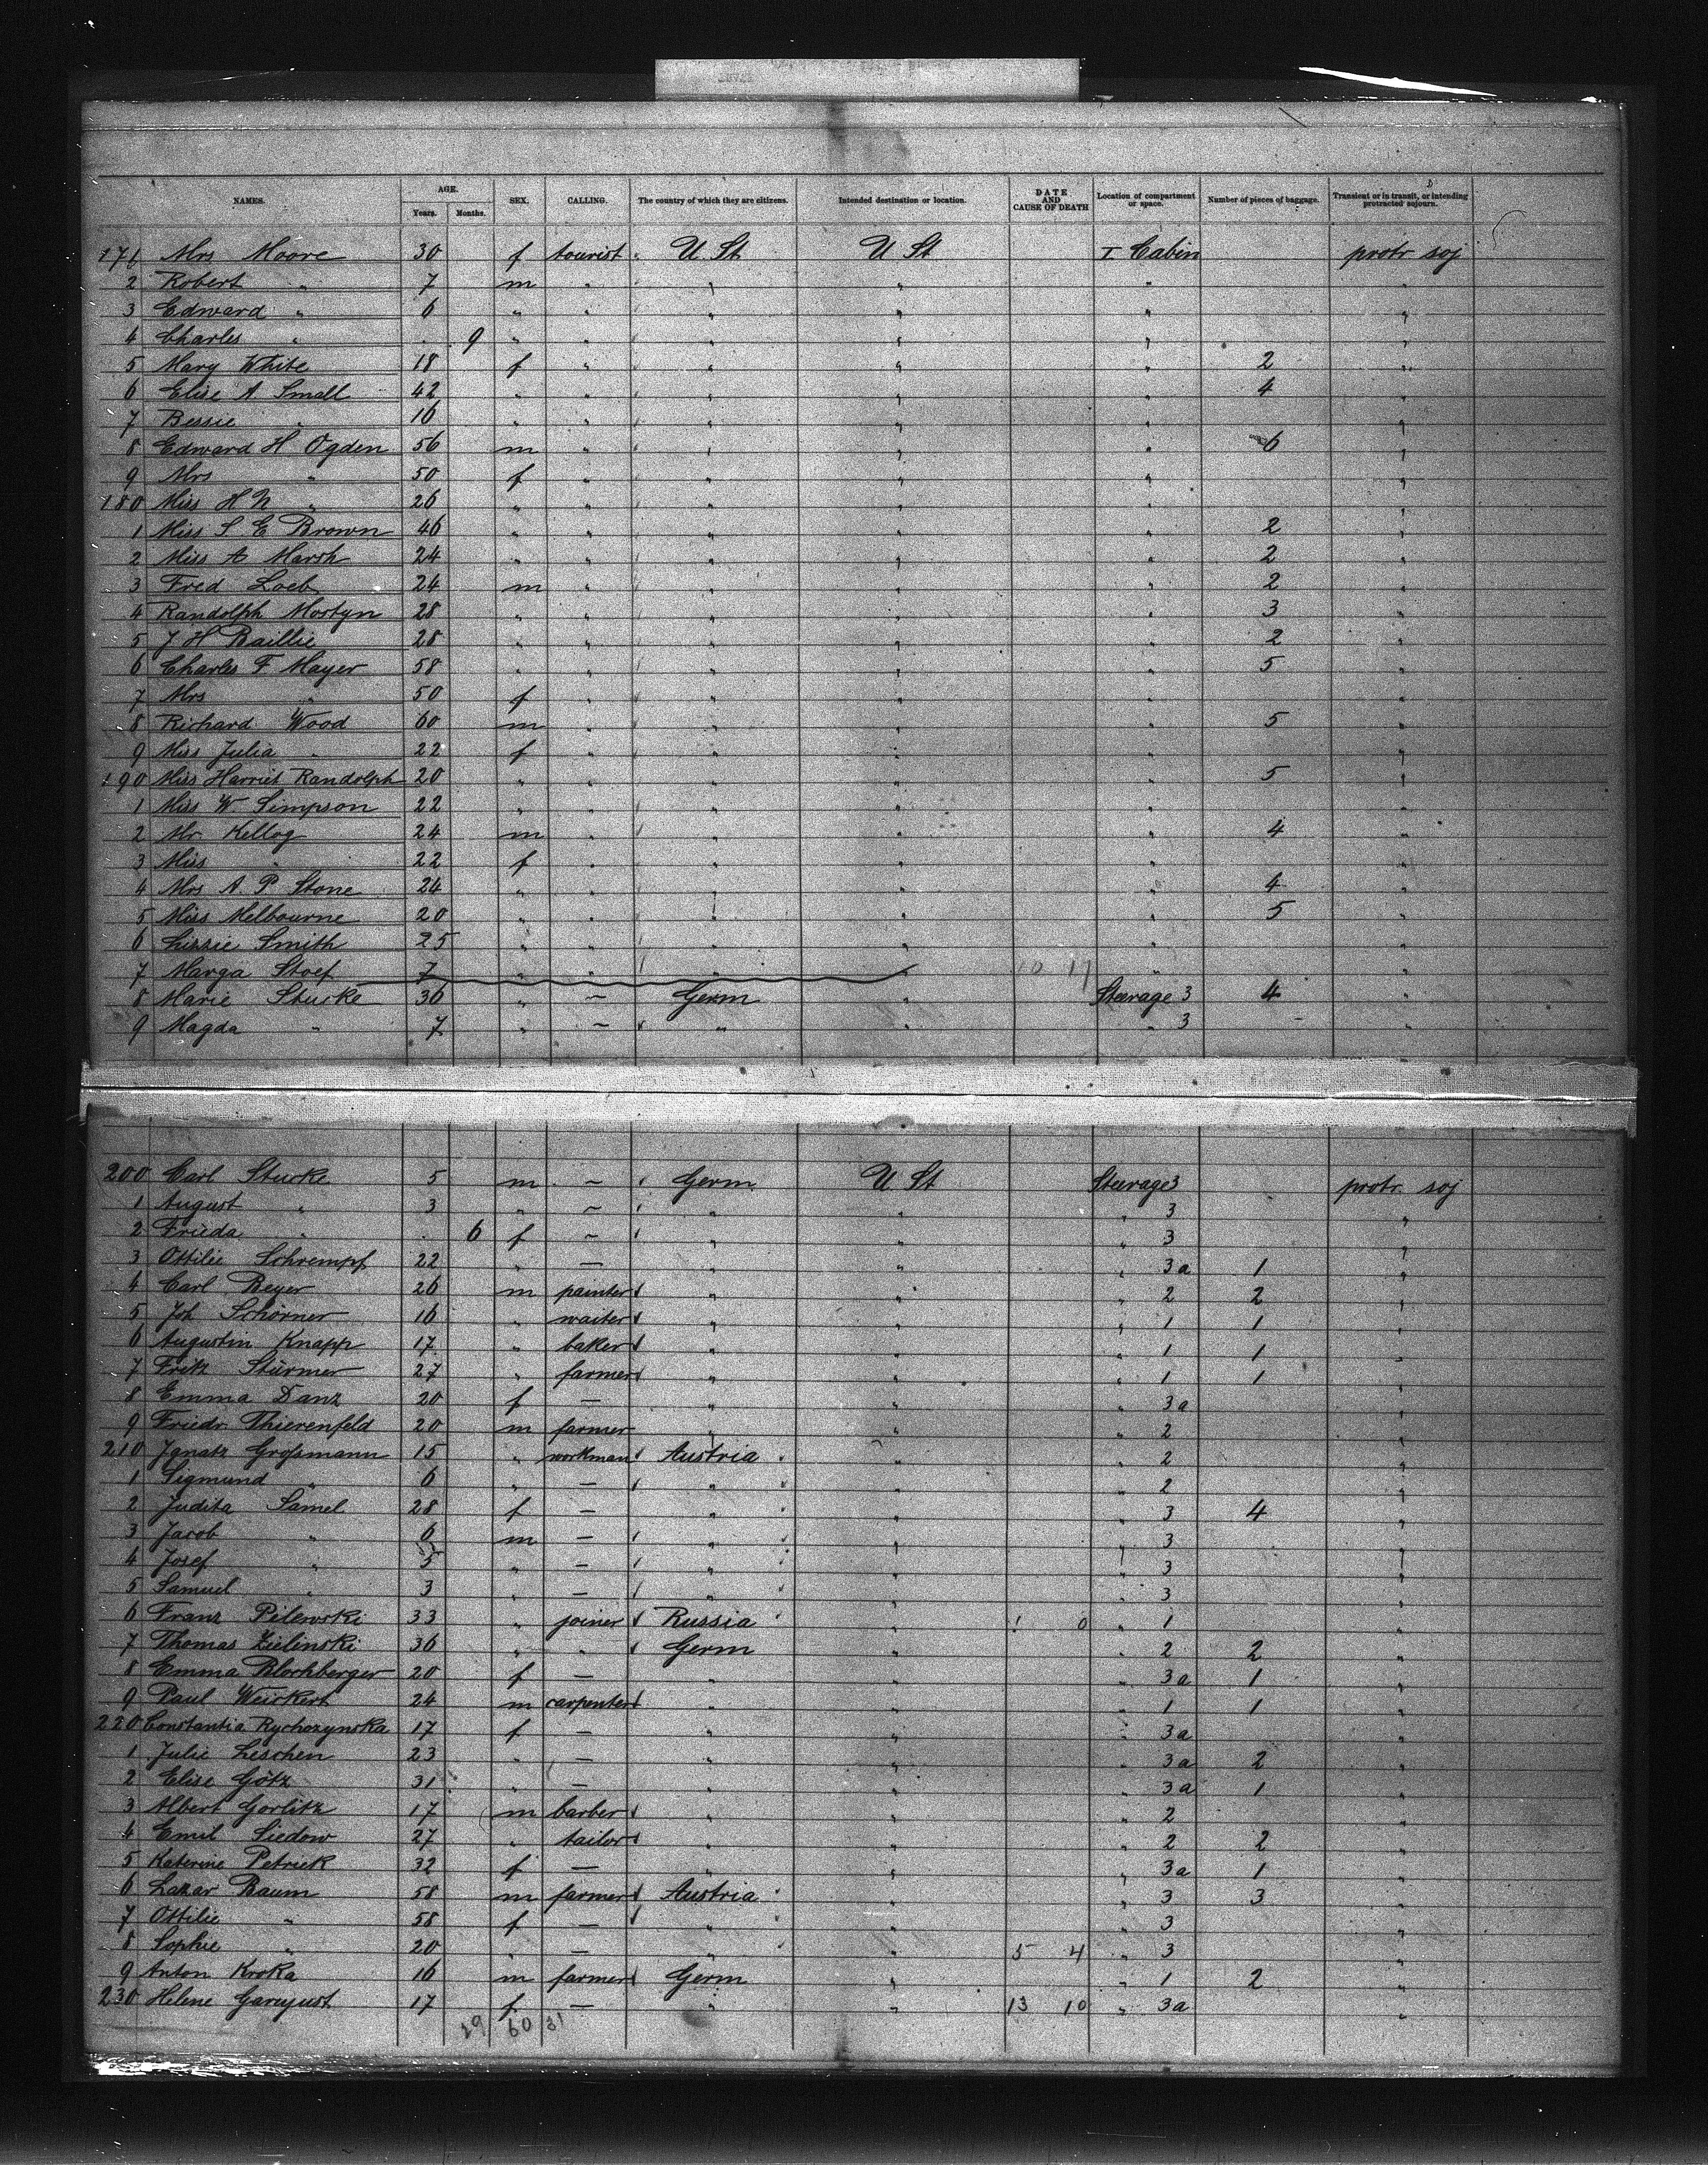 NAMES. AGE. Years. Months. SEX. CALLING. The country of which they are citizens. Intended destination or location. DATE AND CAUSE OF DEATH Location of compartment or space. Number of pieces of baggage. Transient or in transit, or intending protracted sojourn.
171 Mrs Moore 30 f tourist U. St U St I Cabin protr soj
2 Robert " 7 m " " " " "
3 Edward " 6 " " " " " "
4 Charles " 9 " " " " " "
5 Mary White 18 f " " " " 2 "
6 Elise A Small 42 " " " " " 4 "
7 Bessie " 16 " " " " " "
8 Edward H Ogden 56 m " " " " 6 "
9 Mrs " 50 f " " " " "
180 Miss H N " 26 " " " " " "
1 Miss S E Brown 46 " " " " " 2 "
2 Miss A Marsh 24 " " " " " 2 "
3 Fred Loeb 24 m " " " " 2 "
4 Randolph Mostyn 28 " " " " " 3 "
5 J H Baillie 28 " " " " " 2 "
6 Charles F Mayer 58 " " " " " 5 "
7 Mrs " 50 f " " " " "
8 Richard Wood 60 m " " " " 5 "
9 Miss Julia " 22 f " " " " "
190 Miss Harriet Randolph 20 " " " " " 5 "
1 Miss W Simpson 22 " " " " " "
2 Mr. Kellog 24 m " " " " 4 "
3 Miss " 22 f " " " " "
4 Mrs A. P Stone 24 " " " " " 4 "
5 Miss Melbourne 20 " " " " " 5 "
6 Lissie Smith 25 " " " " " "
7 Marga Stoef 7 " " " " 10 17 " "
8 Marie Stucke 36 " – Germ " Steerage 3 4 "
9 Magda " 7 " – " " " 3 "
200 Carl Stucke 5 m – Germ U St Steerage 3 protr. soj
1 August " 3 " – " " " 3 "
2 Frieda " 6 f – " " " 3 "
3 Ottilie Schrempf 22 " – " " " 3a 1 "
4 Carl Beyer 26 m painter " " " 2 2 "
5 Joh Schörner 16 " waiter " " " 1 1 "
6 Augustin Knapp 17 " baker " " " 1 1 "
7 Fritz Stürmer 27 " farmer " " " 1 1 "
8 Emma Danz 20 f – " " " 3a "
9 Friedr. Thierenfeld 20 m farmer " " " 2 "
210 Jgnatz Großmann 15 " workman Austria " " 2 "
1 Sigmund " 6 " – " " " 2 "
2 Judita Samel 28 f – " " " 3 4 "
3 Jacob " 6 m – " " " 3 "
4 Josef " 5 " – " " " 3 "
5 Samuel " 3 " – " " " 3 "
6 Franz Pilewski 33 " joiner Russia " 1 0 " 1 "
7 Thomas Zielinski 36 " " Germ " " 2 2 "
8 Emma Blochberger 20 f – " " " 3a 1 "
9 Paul Weickert 24 m carpenter " " " 1 1 "
220 Constantia Rychozynska 17 f – " " " 3a "
1 Julie Leschen 23 " – " " " 3a 2 "
2 Elise Götz 31 " – " " " 3a 1 "
3 Albert Gorlitz 17 m barber " " " 2 "
4 Emil Siedow 27 " tailor " " " 2 2 "
5 Katerine Petrick 32 f – " " " 3a 1 "
6 Lazar Baum 58 m farmer Austria " " 3 3 "
7 Ottilie " 58 f – " " " 3 "
8 Sophie " 20 " – " " 5 4 " 3 "
9 Anton Kroka 16 m farmer Germ " " 1 2 "
230 Helene 17 f – " " 13 10 " 3a "
29 60 31